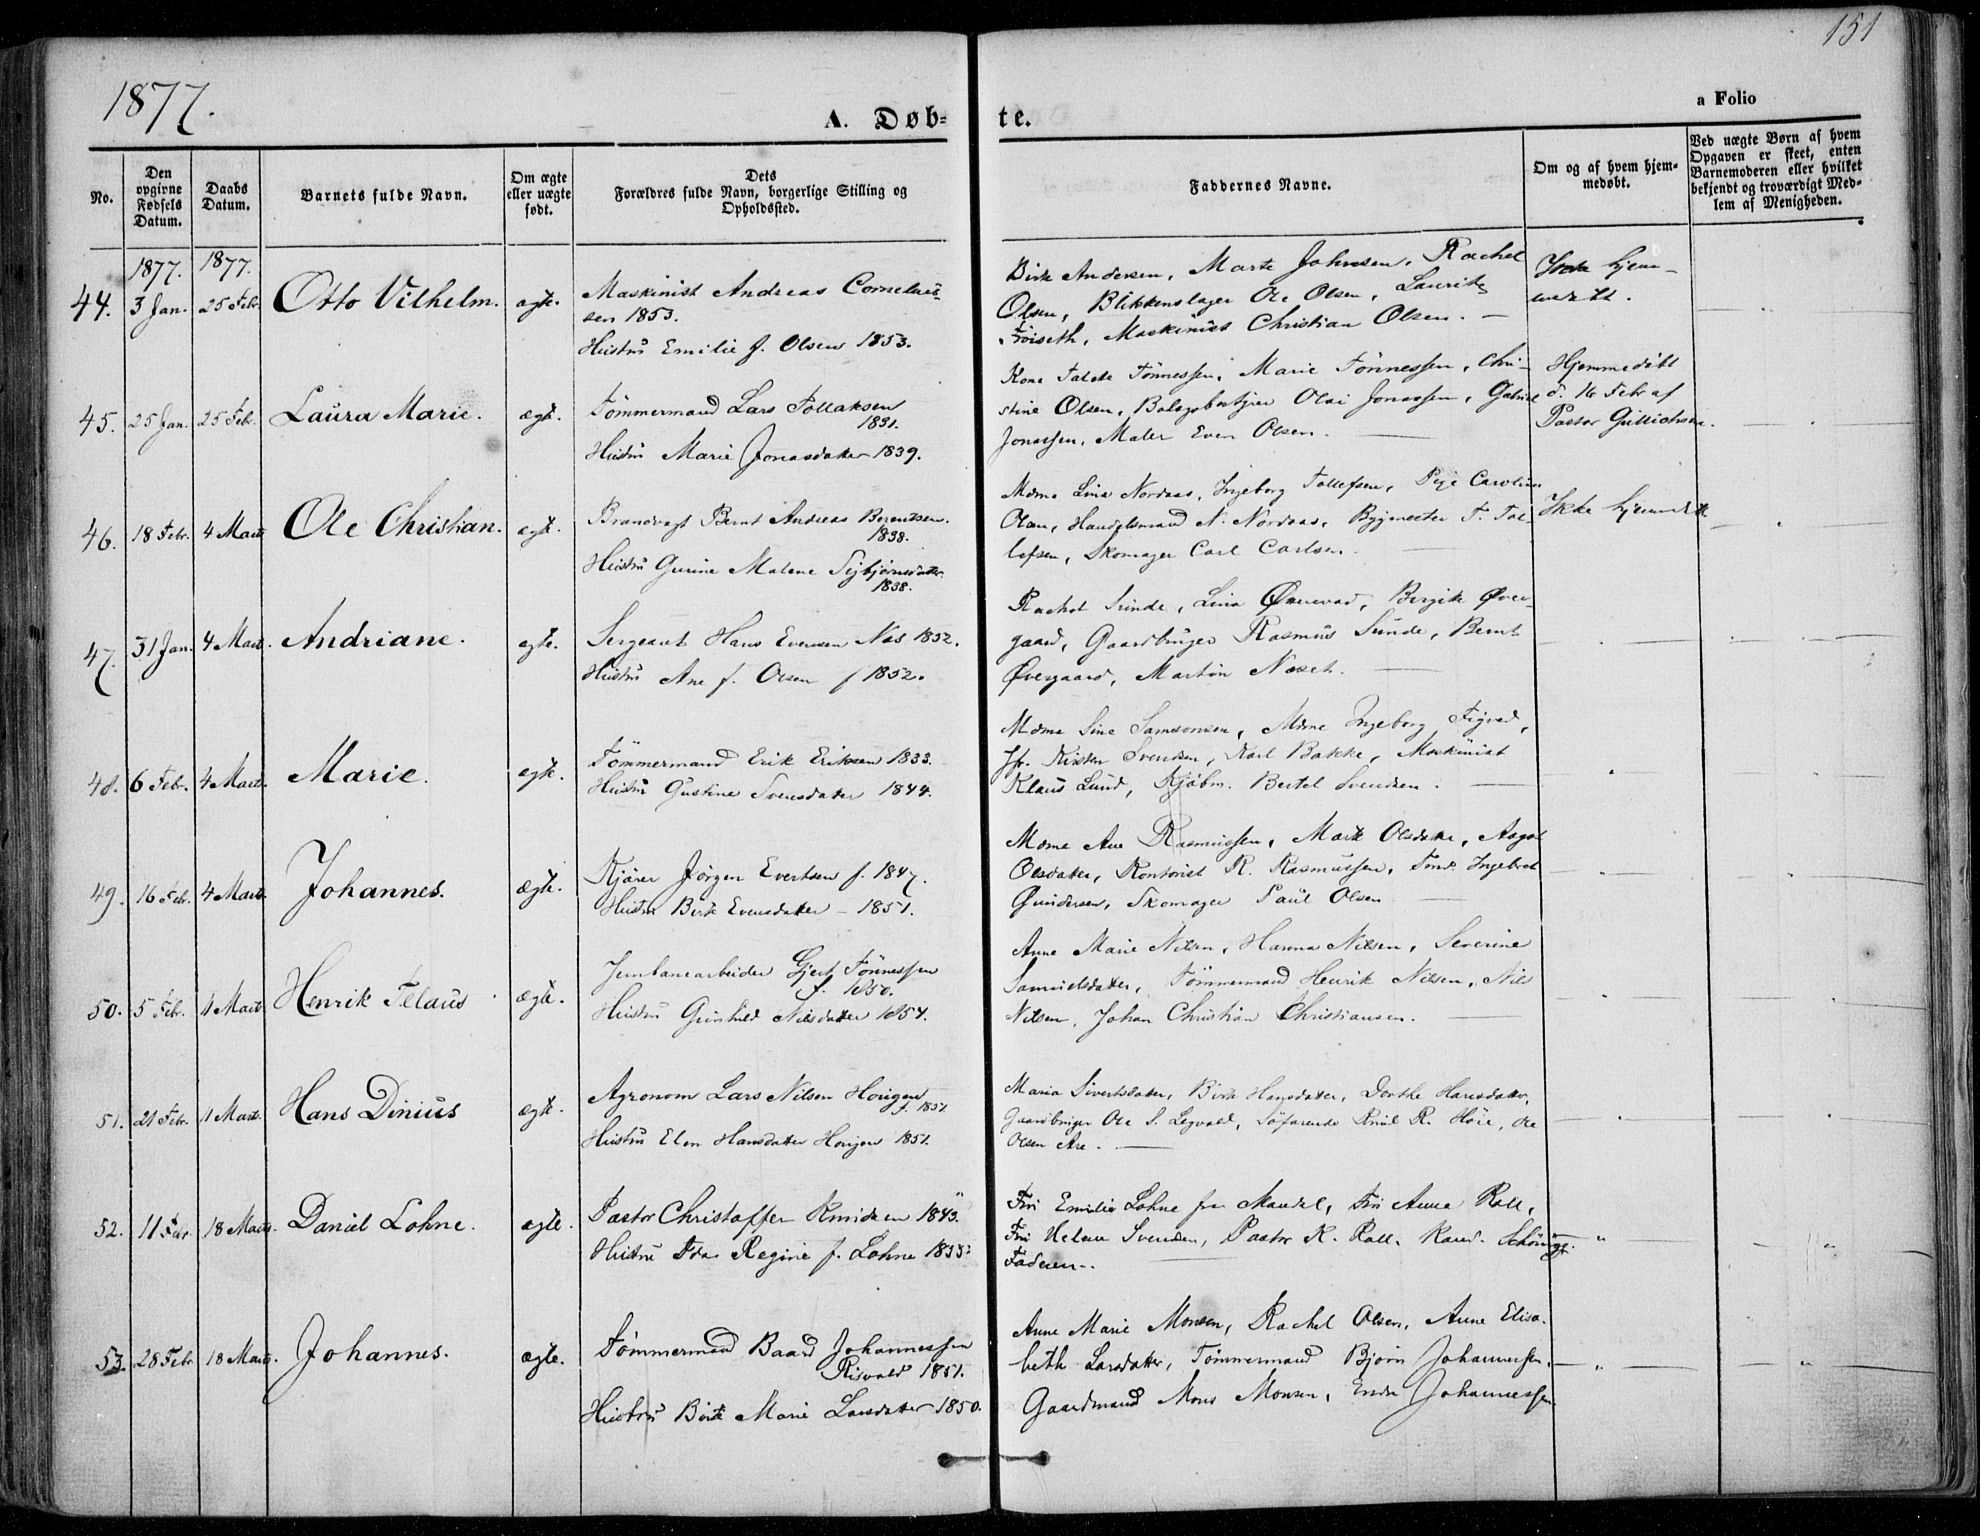 1877.
151
A. Døb-
te.
a Folio
No.
Den opgivne Fødsels Datum.
Daabs Datum.
Barnets fulde Navn.
Om ægte eller uægte født.
Dets
Forældres fulde Navn, borgerlige Stilling og
Opholdssted.
Faddernes Navne.
Om og af hvem hjem-
medøbt.
Ved uægte Børn af hvem
Opgaven er skeet, enten
Barnemoderen eller hvilket
bekjendt og troværdigt Med-
lem af Menigheden.
1877. 1877.
44. 3 Jan. 25 Febr. Otto Vilhelm. ægte.
Maskinist Andreas Cornelius-
sen 1853.
Hustru Emilie f. Olsen 1853.
Birte Andersen, Marte Johnsen, Rachel
Olsen, Blikkenslager Ole Olsen, Laurits
Froiseth, Maskinist Christian Olsen. —
Ikke hjem-
45. 25 Jan. 25 Febr. Laura Marie. ægte.
Tømmermand Lars Tollaksen
1831.
Hustru Marie Jonasdatter 1839.
Kone Tønnessen, Marie Tønnessen, Chri-
stine Olsen, Olai Jonassen, Gabriel
Jonassen, Maler Even Olsen. —
Hjemmedøbt
d. 16 Febr af
Pastor Gillichsen.
46. 18 Febr. 4 Marts Ole Christian. ægte.
Brandvagt Bernt Andreas Berentsen.
1838.
Hustru Gurine Malene Sigbjørnsdatter
1838.
Mdme Lina Nordaas, Ingeborg Tollefsen, Pige Caroline
Olsen, Handelsmand N. Nordaas, Bygmester T. Tol-
lefsen, Skomager Carl Carlsen. —
Ikke hjemmedøbt
47. 31 Jan. 4 Marts. Andriane. ægte.
Sergeant Hans Evensen Næs 1852.
Hustru Ane f. Olsen f 1852.
Rachel Sunde, Lina Øverevad, Bergite Øver-
gaard, Gaardbruger Rasmus Sunde, Bernt
Øvergaard, Martin Næset. —
48. 6 Febr. 4 Marts. Marie. ægte.
Tømmermand Erik Eriksen 1833.
Hustru Gustine Svensdatter 1844.
Mdme Sine Samsonsen, Mdme Ingeborg Sigved,
Jfr. Kirsten Svendsen, Karl Bakke, Maskinist
Klaus Lund, Kjøbm. Bertel Svendsen. —
49. 16 Febr. 4 Marts. Johannes. ægte.
Kjører Jørgen Evertsen f. 1847.
Hustru Birte Evensdatter – 1851.
Mdme Ane Rasmussen, Marte Olsdatter, Aagot
Olsdatter, Kontorist R. Rasmussen, Tmd. Ingebret
Gundersen, Skomager Paul Olsen —
50. 5 Febr. 11 Marts. Henrik Telaus. ægte.
Jernbanearbeider Gjert Tønnessen
f. 1850.
Hustru Gunhild Nilsdatter 1854.
Anne Marie Nilsen, Hanna Nilsen, Severine
Samuelsdatter, Tømmermand Henrik Nilsen, Nils
Nilsen, Johan Christian Christiansen. —
51. 21 Febr. 11 Marts. Hans Dinius ægte.
Agronom Lars Nilsen Horigen
f. 1851.
Hustru Elen Hansdatter Horigen 1851.
Maria Sivertsdatter, Birte Hansdatter, Dorthe Hansdatter,
Gaardbruger Ole S. Legvold, Søfarende Knud R. Høie, Ole
Olsen Are. —
52. 11 18 Marts Daniel Lohne. ægte.
Pastor Christoffer Knudsen 1843.
Hustru Ida Regine f. Lohne 1853.
Fru Emilie Lohne fra Mandal, Fru Anna Rall,
Fru Helene Svendsen, Pastor K. Rall, Kand. Schöning.
Faderen. —
53. 28 Febr 18 Marts. Johannes. ægte.
Tømmermand Baard Johannessen
Risvold 1851.
Hustru Birte Marie Larsdatter 1850.
Anne Marie Monsen, Rachel Olsen, Anne Elisa-
beth Larsdatter, Tømmermand Bjørn Johannessen,
Gaardmand Mons Monsen, Endre Johannessen